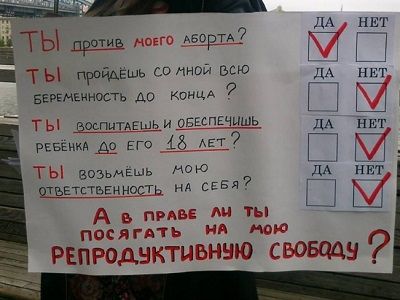 ТЫ ПРОТИВ МОЕГО АБОРТА?
ДА НЕТ
ТЫ ПРОЙДЁШЬ СО МНОЙ ВСЮ
БЕРЕМЕННОСТЬ ДО КОНЦА?
ДА НЕТ
ТЫ ВОСПИТАЕШЬ И ОБЕСПЕЧИШЬ
РЕБЁНКА ДО ЕГО 18 ЛЕТ?
ДА НЕТ
ТЫ ВОЗЬМЁШЬ МОЮ
ОТВЕТСТВЕННОСТЬ НА СЕБЯ?
ДА НЕТ
А В ПРАВЕ ЛИ ТЫ
ПОСЯГАТЬ НА МОЮ
РЕПРОДУКТИВНУЮ СВОБОДУ?